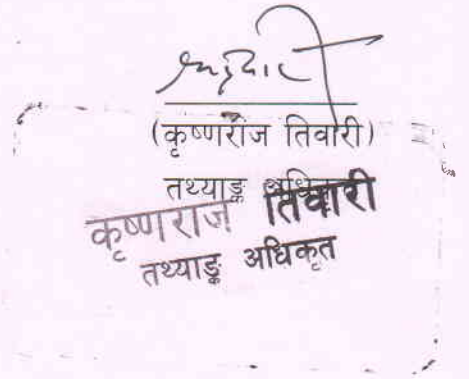 (कृष्णराज तिवारी)
तथ्याङ्क अधिकृत
कृष्णराज तिवारी
तथ्याङ्क अधिकृत